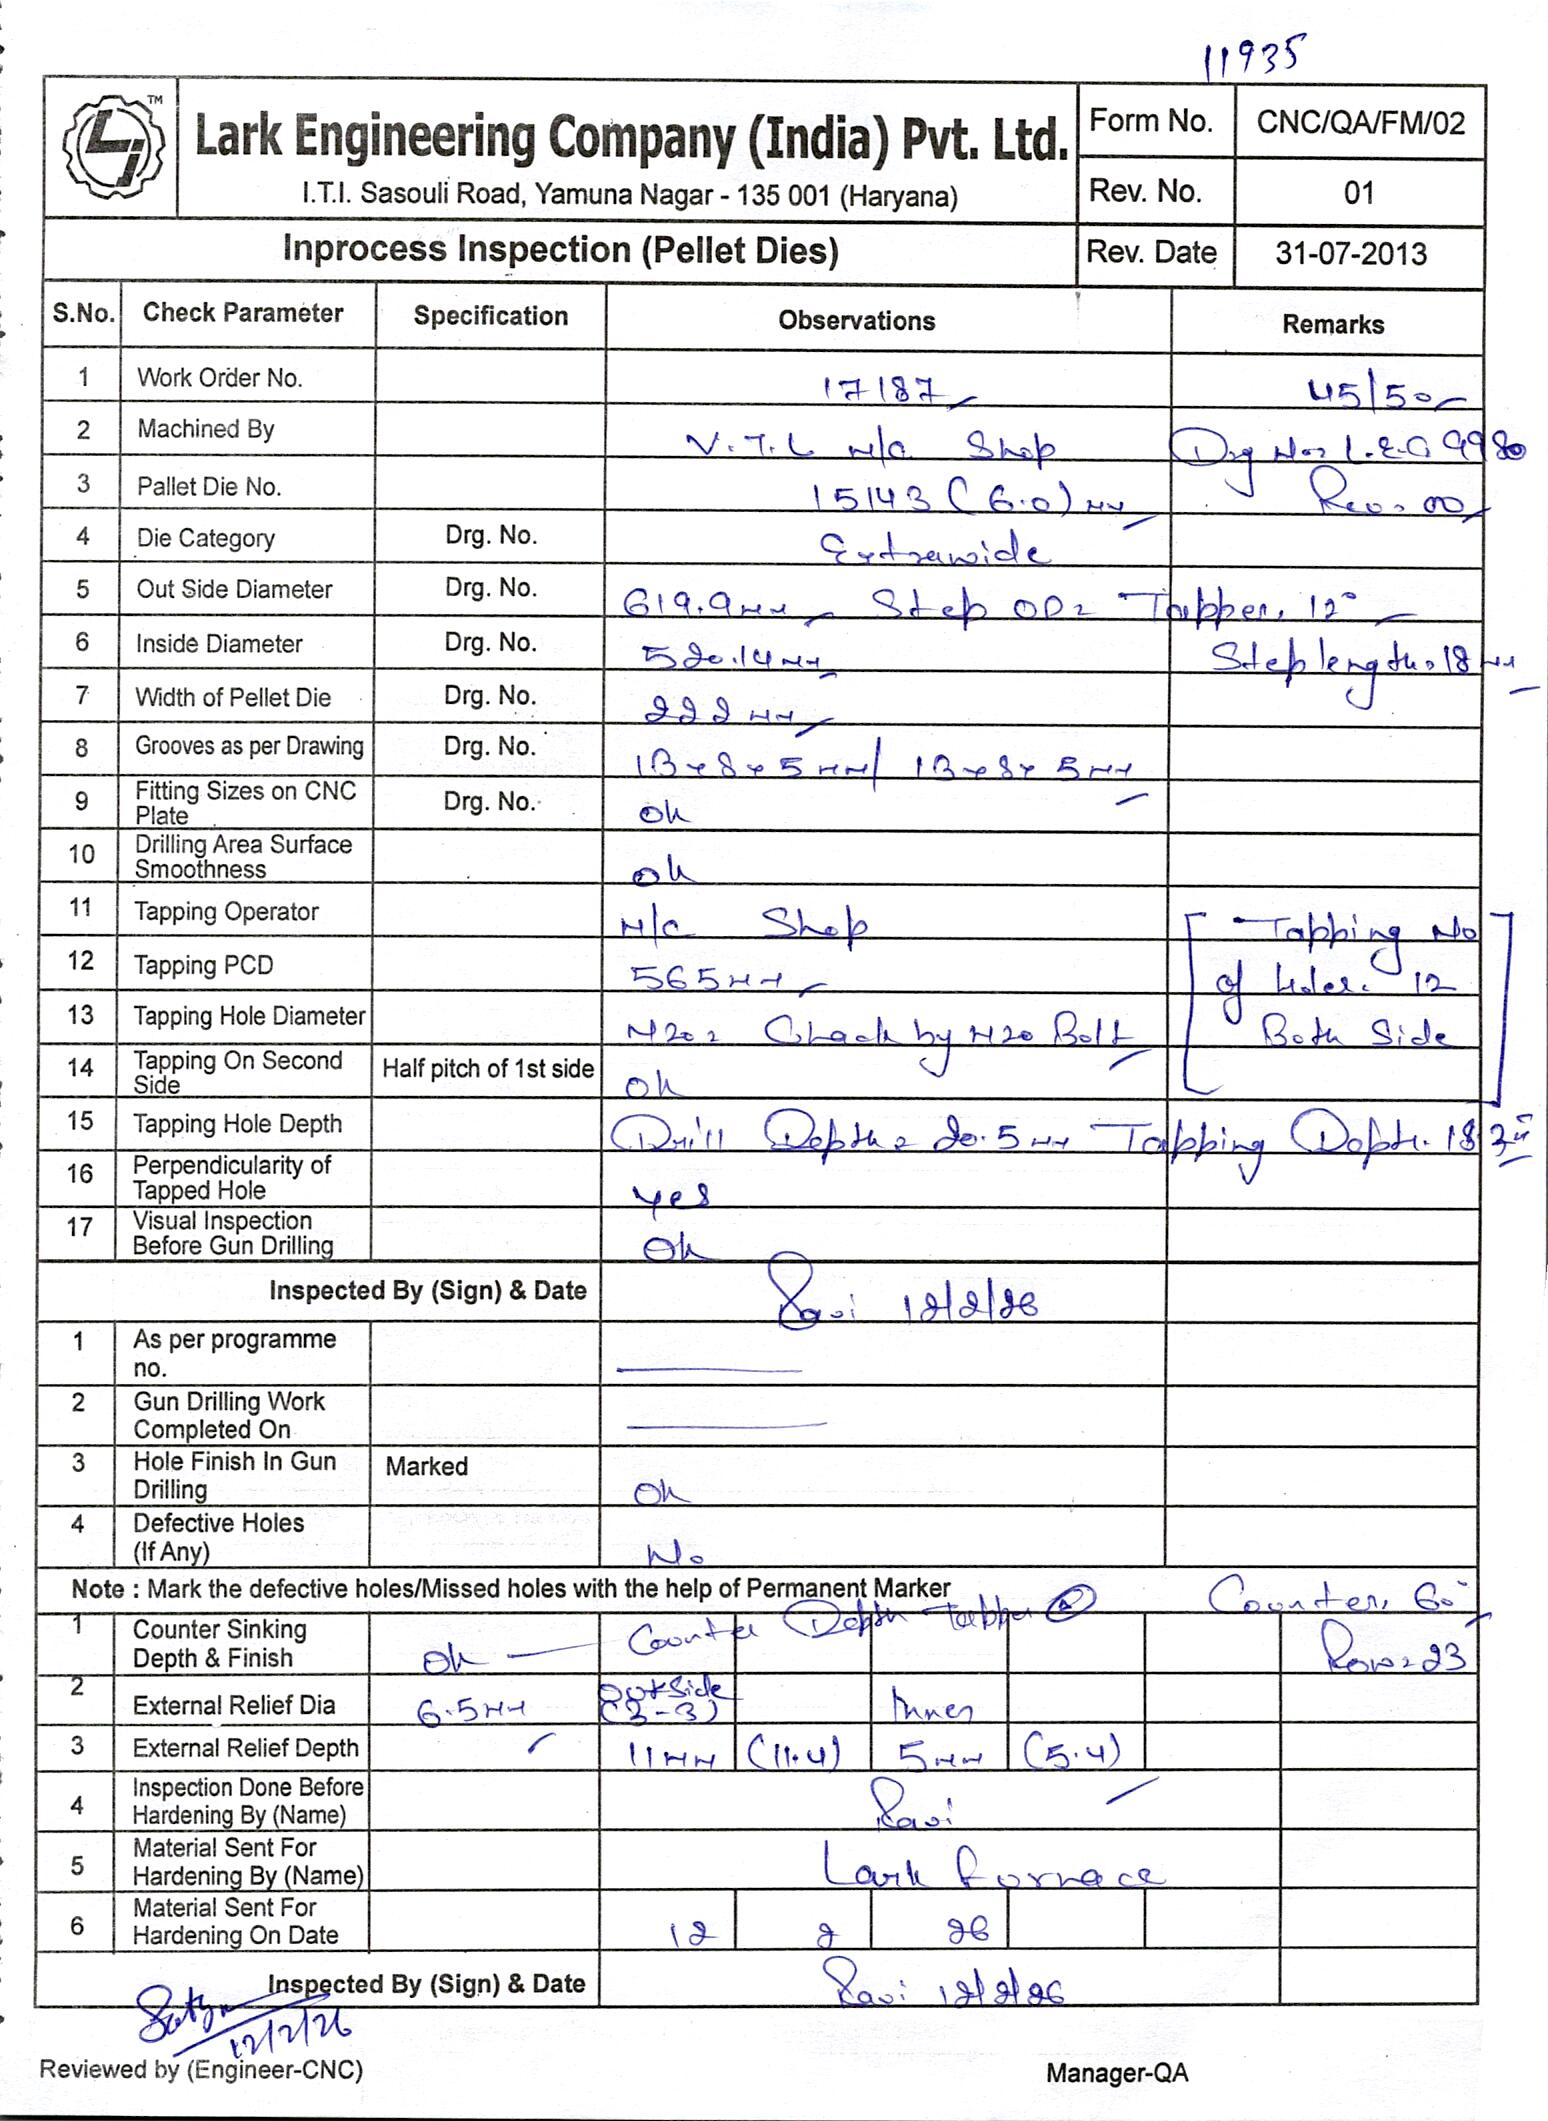 11935
TM
Lark Engineering Company (India) Pvt. Ltd.
I.T.I. Sasouli Road, Yamuna Nagar - 135 001 (Haryana)
Form No. CNC/QA/FM/02
Rev. No. 01
Inprocess Inspection (Pellet Dies) Rev. Date 31-07-2013
S.No. Check Parameter Specification Observations Remarks
1 Work Order No. 17187 45/50
2 Machined By V.T.L M/C Shop Drg No= L.E.C 9980
3 Pallet Die No. 15143 (6.0) mm Rev. 00
4 Die Category Drg. No. Extrawide
5 Out Side Diameter Drg. No. 619.9mm Step OD= Tapper. 12°
6 Inside Diameter Drg. No. 520.14mm Step length=18 mm
7 Width of Pellet Die Drg. No. 222 mm
8 Grooves as per Drawing Drg. No. 13x8x5mm/ 13x8x5mm
9 Fitting Sizes on CNC
Plate Drg. No. Ok
10 Drilling Area Surface
Smoothness ok
11 Tapping Operator M/C Shop Tapping No
12 Tapping PCD 565mm of holes. 12
13 Tapping Hole Diameter M20= Check by M20 Bolt Both Side
14 Tapping On Second
Side Half pitch of 1st side Ok
15 Tapping Hole Depth Drill Depth= 20.5mm Tapping Depth.
16 Perpendicularity of
Tapped Hole yes
17 Visual Inspection
Before Gun Drilling Ok
Inspected By (Sign) & Date Ravi 12/2/26
1 As per programme
no.
2 Gun Drilling Work
Completed On
3 Hole Finish In Gun
Drilling Marked Ok
4 Defective Holes
(If Any) No
Note : Mark the defective holes/Missed holes with the help of Permanent Marker
Counter. 60°
1 Counter Sinking
Depth & Finish Ok Counter Depth Tapper Row=23
2 External Relief Dia 6.5mm Outside
(3-3) Inner
3 External Relief Depth 11mm (11.4) 5mm (5.4)
4 Inspection Done Before
Hardening By (Name) Ravi
5 Material Sent For
Hardening By (Name) Lark furnace
6 Material Sent For
Hardening On Date 12 2 26
Inspected By (Sign) & Date Ravi 12/2/26
12/2/26
Reviewed by (Engineer-CNC) Manager-QA